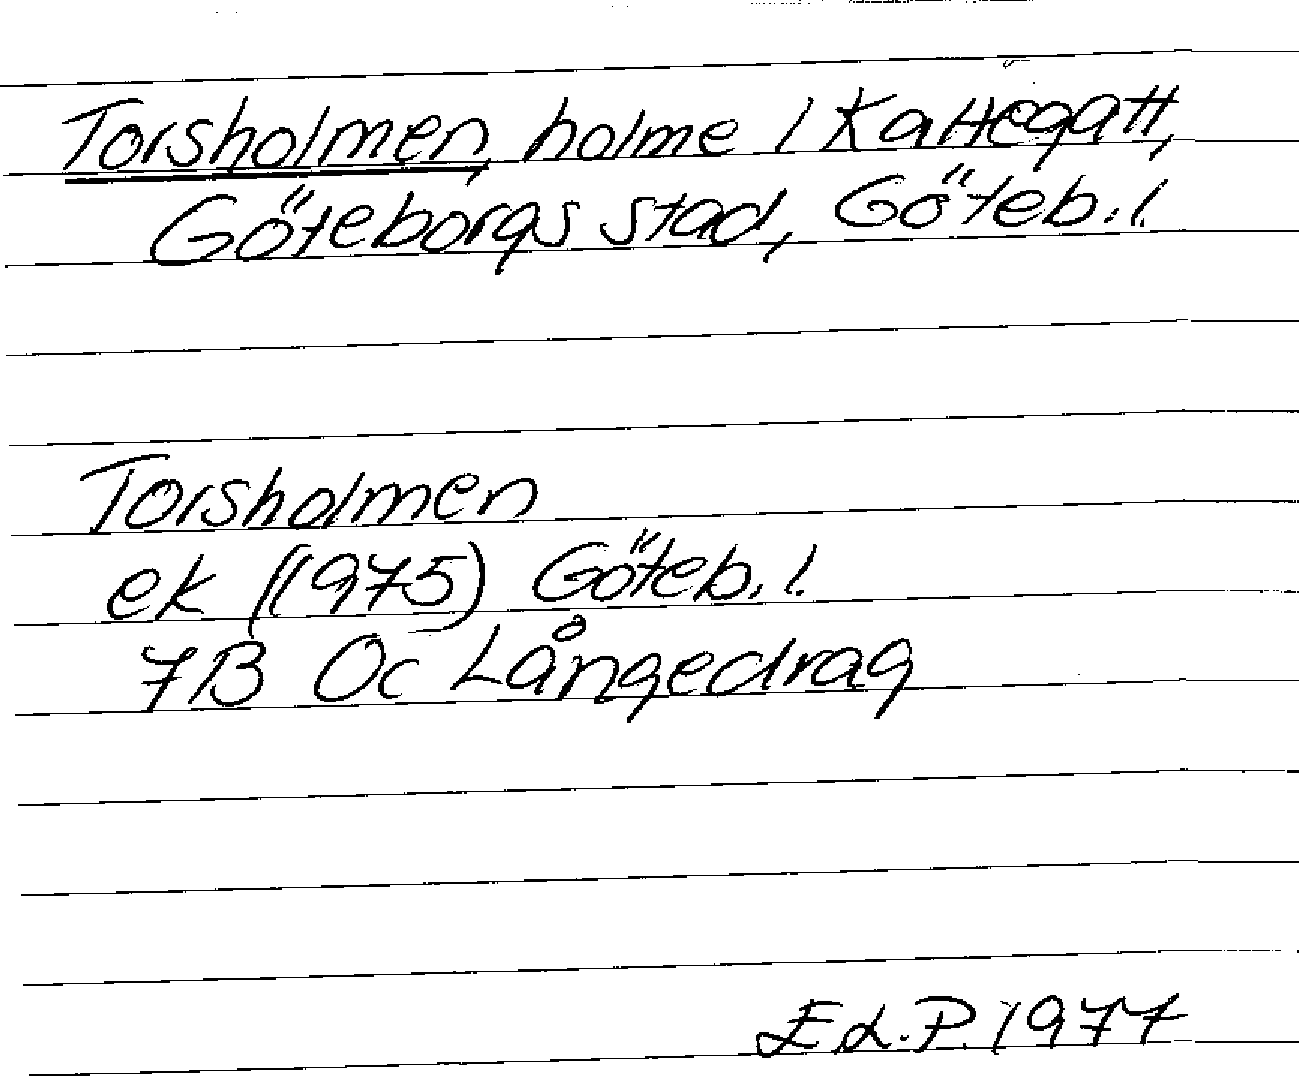 Torsholmen, holme i Kattegatt,
Göteborgs stad, Göteb. l.
Torsholmen
ek (1975) Göteb. l.
7B Oc Långedrag
E.L.P. 1977